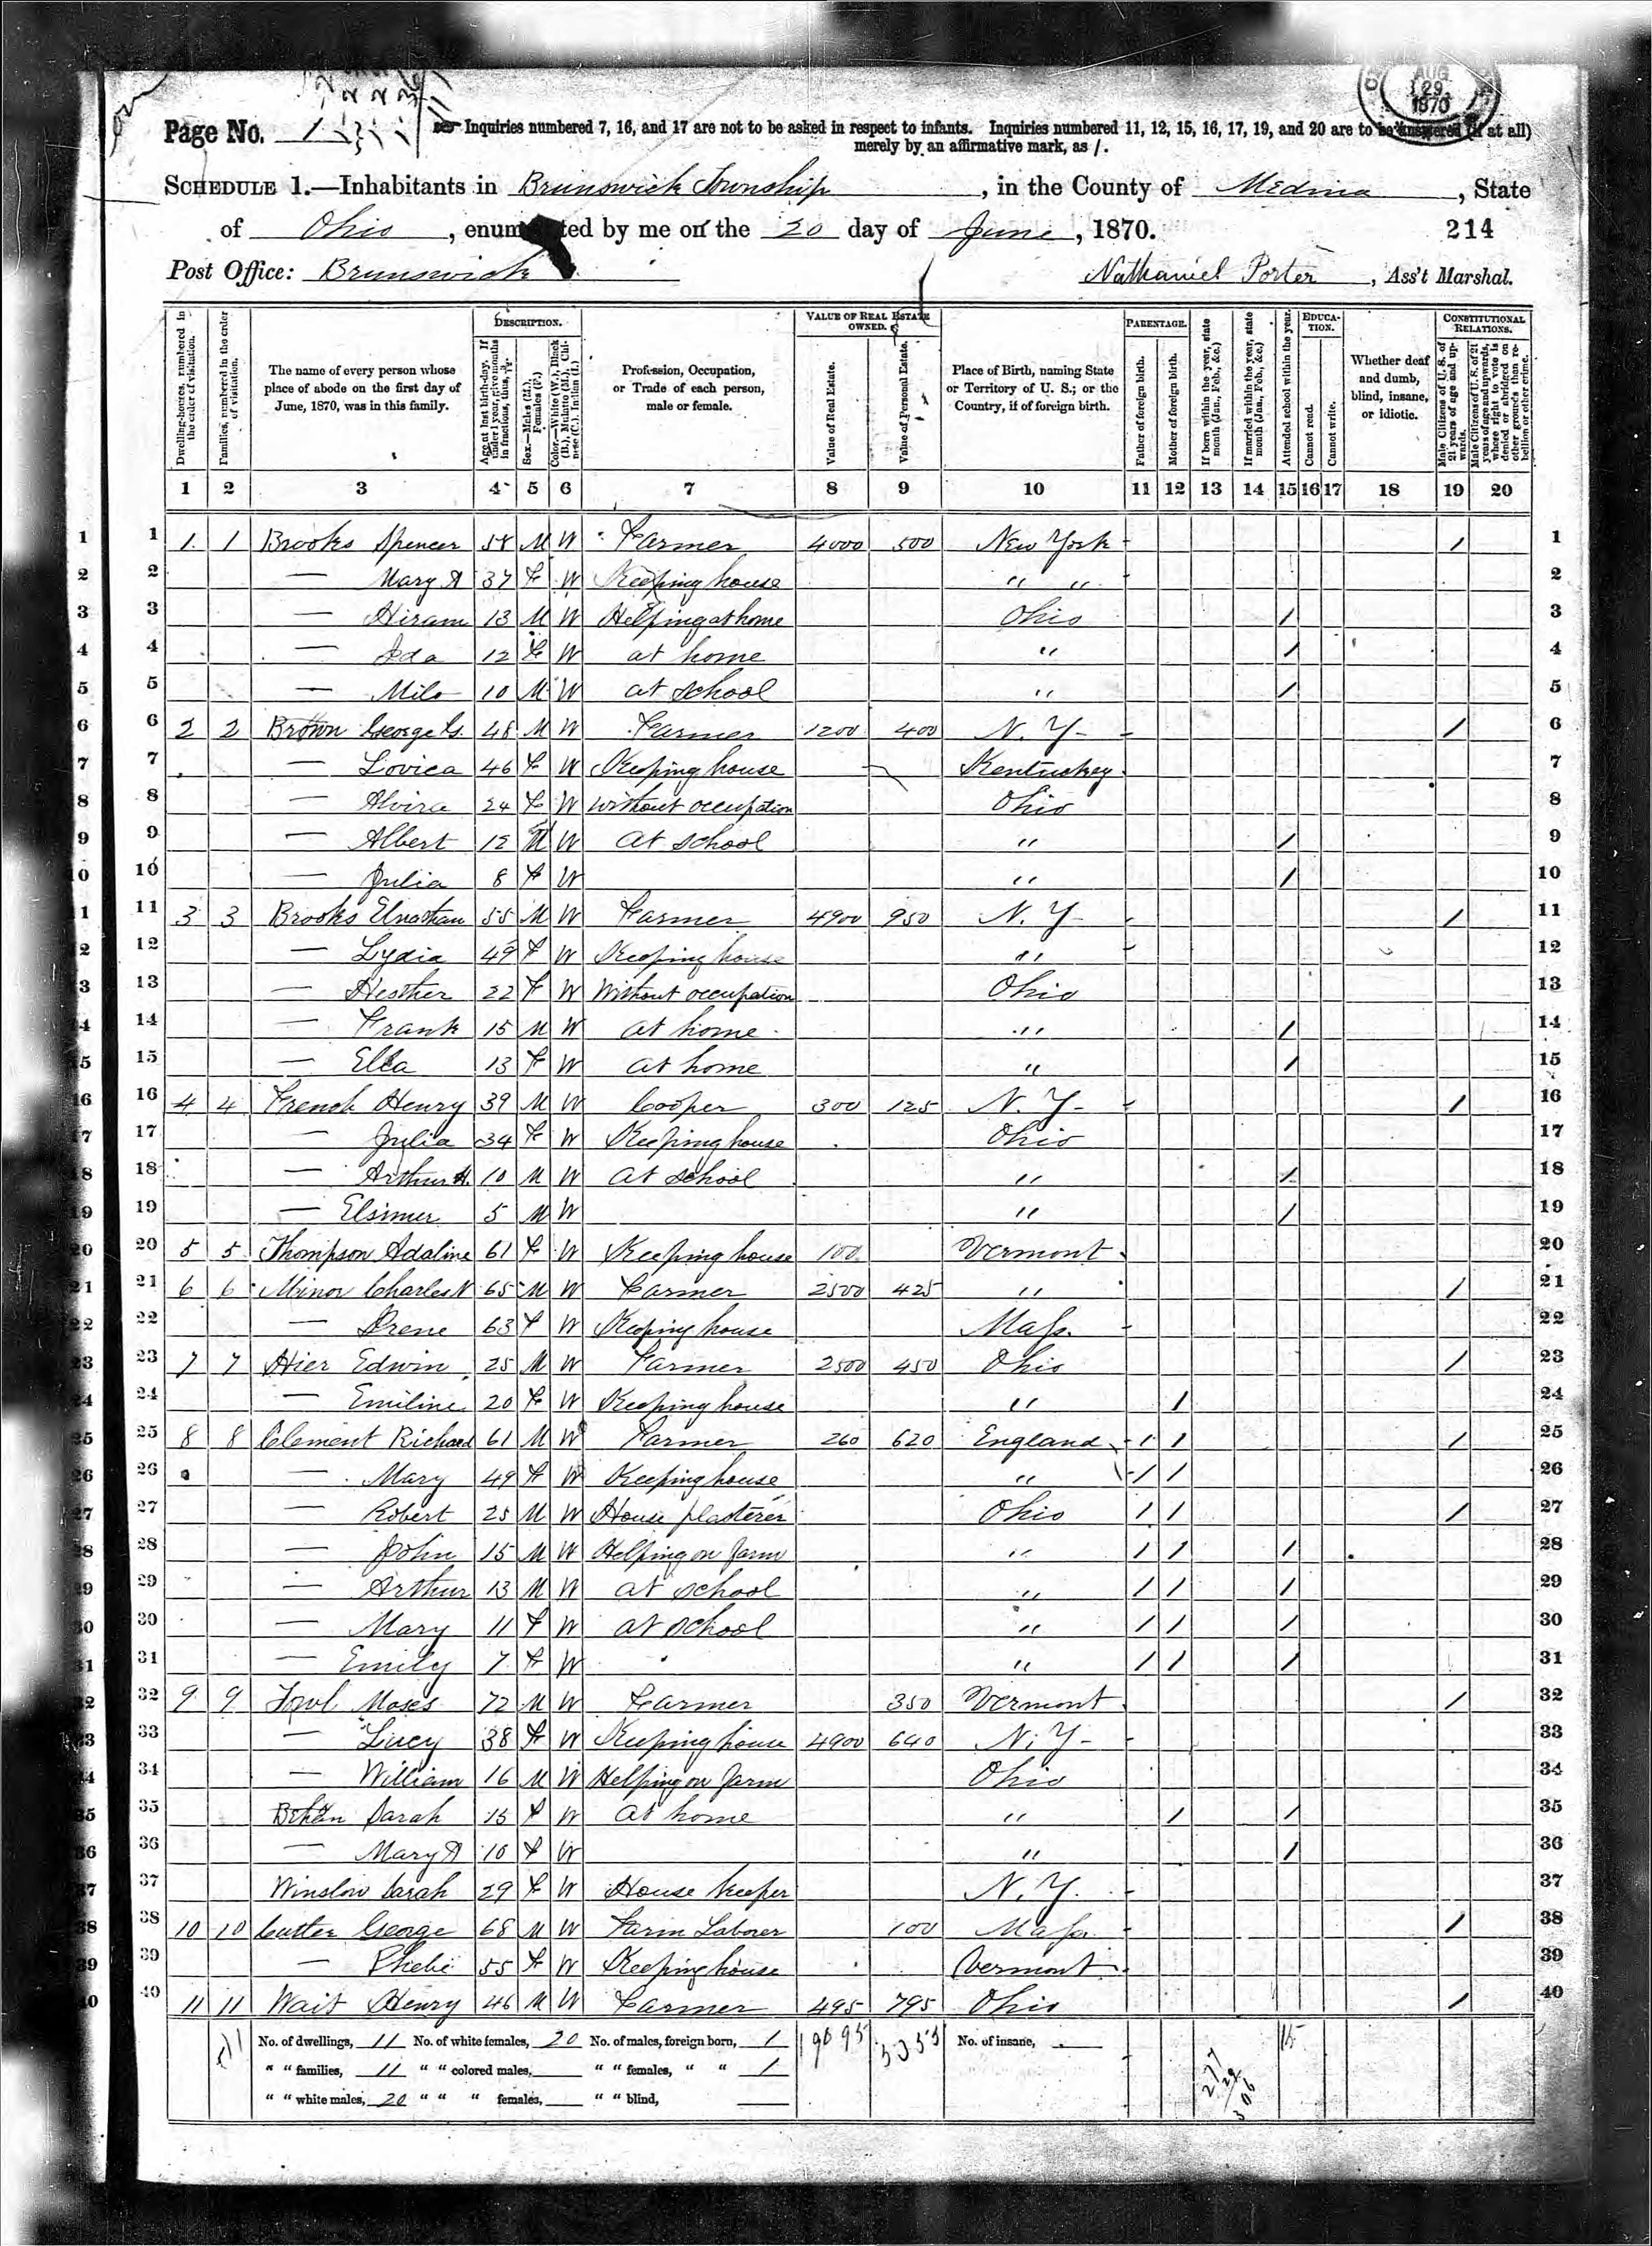 AUG 29 1870
Page No. 1 Inquiries numbered 7, 16, and 17 are not to be asked in respect to infants. Inquiries numbered 11, 12, 15, 16, 17, 19, and 20 are to be answered (if at all)
merely by an affirmative mark, as /.
SCHEDULE 1.—Inhabitants in Brunswick Township, in the County of Medina, State
of Ohio, enumerated by me on the 20 day of June, 1870. 214
Post Office: Brunswick Nathaniel Porter, Ass't Marshal.
Dwelling-houses, numbered in the order of visitation.
Families, numbered in the order of visitation.
The name of every person whose place of abode on the first day of June, 1870, was in this family.
DESCRIPTION.
Age at last birth-day. If under 1 year, give months in fractions, thus, 3/12.
Sex.—Males (M.), Females (F.)
Color.—White (W.), Black (B.), Mulatto (M.), Chinese (C.), Indian (I.)
Profession, Occupation, or Trade of each person, male or female.
VALUE OF REAL ESTATE OWNED.
Value of Real Estate.
Value of Personal Estate.
Place of Birth, naming State or Territory of U. S.; or the Country, if of foreign birth.
PARENTAGE.
Father of foreign birth.
Mother of foreign birth.
If born within the year, state month (Jan., Feb., &c.)
If married within the year, state month (Jan., Feb., &c.)
Attended school within the year.
EDUCATION.
Cannot read.
Cannot write.
Whether deaf and dumb, blind, insane, or idiotic.
CONSTITUTIONAL RELATIONS.
Male Citizens of U. S. of 21 years of age and upwards.
Male Citizens of U. S. of 21 years of age and upwards, whose right to vote is denied or abridged on other grounds than rebellion or other crime.
1 2 3 4 5 6 7 8 9 10 11 12 13 14 15 16 17 18 19 20
1 1 1 1 Brooks Spencer 58 M W Farmer 4000 500 New York / 1
2 2 — Mary A 37 F W Keeping house " " 2
3 3 — Hiram 13 M W Helping at home Ohio / 3
4 4 — Ida 12 F W at home " / 4
5 5 — Milo 10 M W at school " / 5
6 6 2 2 Brown George G. 48 M W Farmer 1200 400 N. Y- / 6
7 7 — Lovica 46 F W Keeping house Kentuckey 7
8 8 — Alvira 24 F W without occupation Ohio 8
9 9 — Albert 12 M W at school " / 9
10 10 — Julia 8 F W " / 10
11 11 3 3 Brooks Elnathan 55 M W Farmer 4900 950 N. Y- / 11
12 12 — Lydia 49 F W Keeping house " 12
13 13 — Hesther 22 F W Without occupation Ohio 13
14 14 — Frank 15 M W at home " / 14
15 15 — Ella 13 F W at home " / 15
16 16 4 4 French Henry 39 M W Cooper 300 125 N. Y- / 16
17 17 — Julia 34 F W Keeping house Ohio 17
18 18 — Arthur H. 10 M W at school " / 18
19 19 — Elsimer 5 M W " / 19
20 20 5 5 Thompson Adaline 61 F W Keeping house 100 Vermont 20
21 21 6 6 Minor Charles N 65 M W Farmer 2500 425 " / 21
22 22 — Irene 63 F W Keeping house Mass. 22
23 23 7 7 Hier Edwin 25 M W Farmer 2500 450 Ohio / 23
24 24 — Emiline 20 F W Keeping house " / 24
25 25 8 8 Clement Richard 61 M W Farmer 260 620 England / / / 25
26 26 — Mary 49 F W Keeping house " / / 26
27 27 — Robert 25 M W House plasterer Ohio / / / 27
28 28 — John 15 M W Helping on farm " / / / 28
29 29 — Arthur 13 M W at school " / / / 29
30 30 — Mary 11 F W at school " / / / 30
31 31 — Emily 7 F W " / / / 31
32 32 9 9 Moses 72 M W Farmer 350 Vermont / 32
33 33 — Lucy 38 F W Keeping house 4900 640 N. Y- 33
34 34 — William 16 M W Helping on farm Ohio 34
35 35 Sarah 15 F W at home " / / 35
36 36 — Mary A 10 F W " / 36
37 37 Winslow Sarah 29 F W House keeper N. Y. 37
38 38 10 10 Cutler George 68 M W Farm Laborer 100 Mass. / 38
39 39 — Phebe 55 F W Keeping house Vermont 39
40 40 11 11 Wait Henry 46 M W Farmer 495 795 Ohio / 40
No. of dwellings, 11 No. of white females, 20 No. of males, foreign born, 1 No. of insane,
" " families, 11 " " colored males, " " females, " " 1
" " white males, 20 " " " females, " " blind,
15
277
29
306